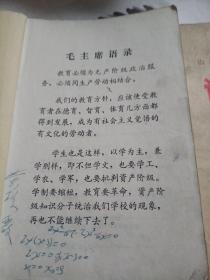 毛主席语录
教育必须为无产阶级政治服
务，必须同生产劳动相结合。
我们的教育方针，应该使受教
育者在德育、智育、体育几方面都
得到发展，成为有社会主义觉悟的
有文化的劳动者。
学生也是这样，以学为主，兼
学别样，即不但学文，也要学工、
学农、学军，也要批判资产阶级。
学制要缩短，教育要革命，资产阶
级知识分子统治我们学校的现象，
再也不能继续下去了。